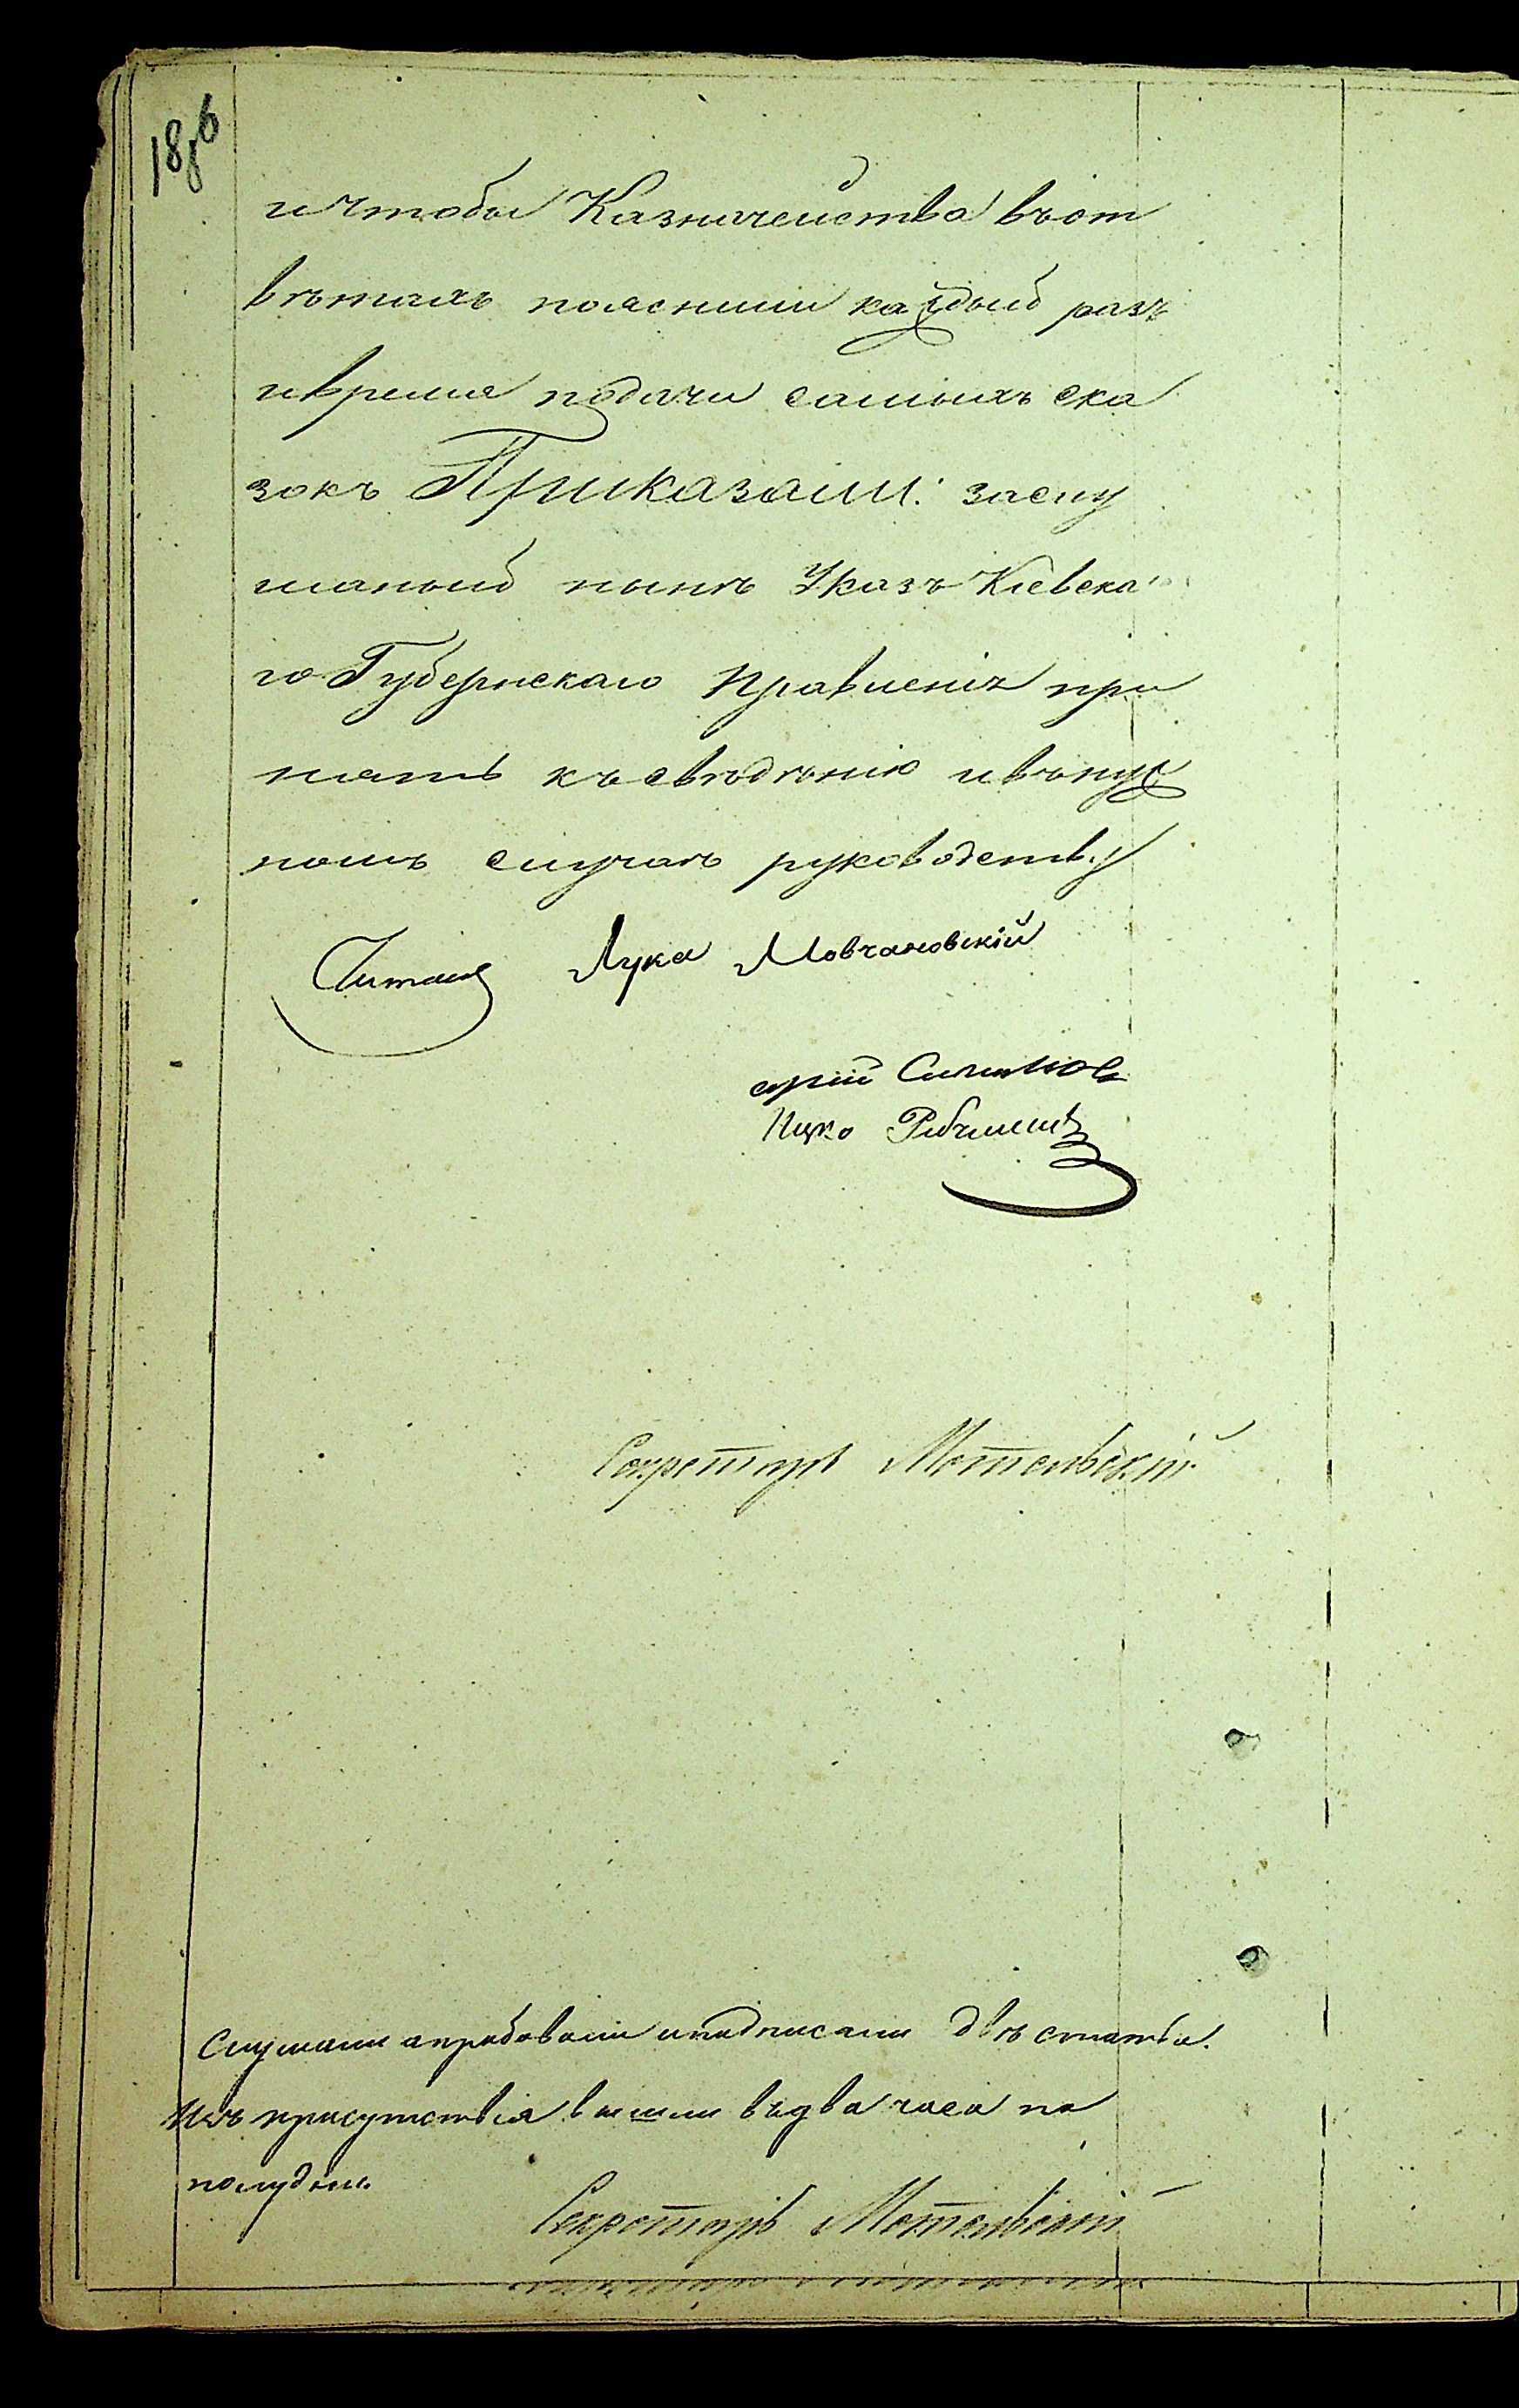 и чтобы Казначейства въ от
вѣтахъ поясняли каждый разъ
и время подачи самыхъ ска
зокъ Приказали: заслу
шаный нынѣ Указъ Кіевска
го Губернскаго Правленія при
нять къ свѣдѣнію и въ нуж
номъ случаѣ руководству
Читалъ Лука Мовчановскій
Ицко
Секретарь Мотельвскій
Слушали апробовали и подписали двѣ статьи.
Изъ присутствія вышли въ два часа по
полудни.
Секретарь Мотельвскій